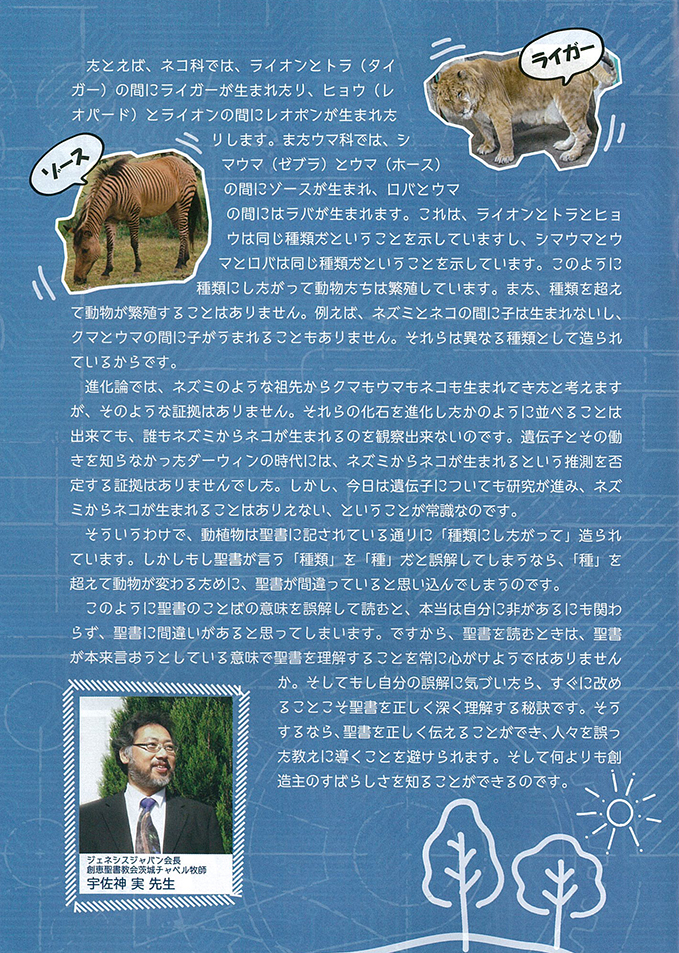 ライガー
たとえば、ネコ科では、ライオンとトラ（タイ
ガー）の間にライガーが生まれたり、ヒョウ（レ
オパード）とライオンの間にレオポンが生まれた
りします。またウマ科では、シ
マウマ（ゼブラ）とウマ（ホース）
の間にゾースが生まれ、ロバとウマ
の間にはラバが生まれます。これは、ライオンとトラとヒョ
ウは同じ種類だということを示していますし、シマウマとウ
マとロバは同じ種類だということを示しています。このように
種類にしたがって動物たちは繁殖しています。また、種類を超え
て動物が繁殖することはありません。例えば、ネズミとネコの間に子は生まれないし、
クマとウマの間に子がうまれることもありません。それらは異なる種類として造られ
ているからです。
ゾース
進化論では、ネズミのような祖先からクマもウマもネコも生まれてきたと考えます
が、そのような証拠はありません。それらの化石を進化したかのように並べることは
出来ても、誰もネズミからネコが生まれるのを観察出来ないのです。遺伝子とその働
きを知らなかったダーウィンの時代には、ネズミからネコが生まれるという推測を否
定する証拠はありませんでした。しかし、今日は遺伝子についても研究が進み、ネズ
ミからネコが生まれることはありえない、ということが常識なのです。
そういうわけで、動植物は聖書に記されている通りに「種類にしたがって」造られ
ています。しかしもし聖書が言う「種類」を「種」だと誤解してしまうなら、「種」を
超えて動物が変わるために、聖書が間違っていると思い込んでしまうのです。
このように聖書のことばの意味を誤解して読むと、本当は自分に非があるにも関わ
らず、聖書に間違いがあると思ってしまいます。ですから、聖書を読むときは、聖書
が本来言おうとしている意味で聖書を理解することを常に心がけようではありません
か。そしてもし自分の誤解に気づいたら、すぐに改め
ることこそ聖書を正しく深く理解する秘訣です。そう
するなら、聖書を正しく伝えることができ、人々を誤っ
た教えに導くことを避けられます。そして何よりも創
造主のすばらしさを知ることができるのです。
ジェネシスジャパン会長
創恵聖書教会茨城チャペル牧師
宇佐神 実 先生